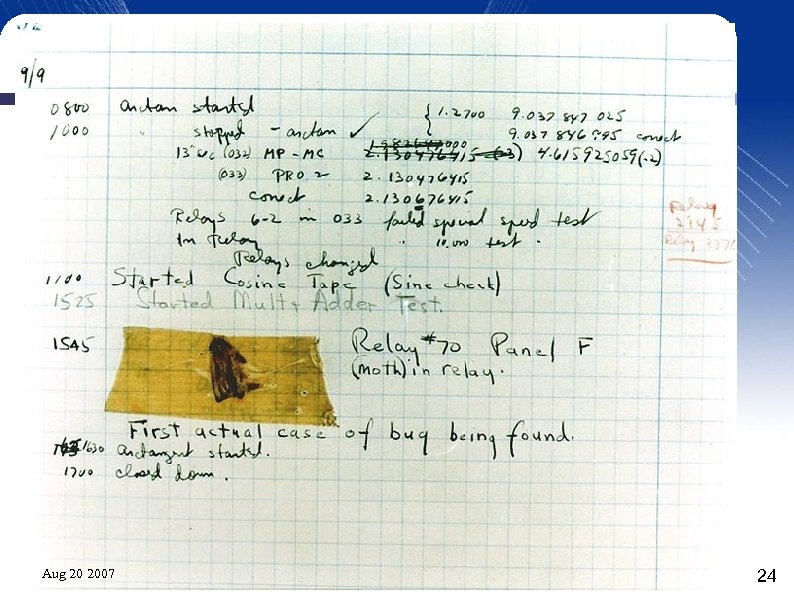 9/9
0800 antan started { 1.2700 9.037 847 025
1000 " stopped - antan ✓ 9.037 846 995 conect
13"uc (032) MP - MC 2.130476415 (-3) 4.615925059(-2)
(033) PRO 2 2.130476415
conect 2.130676415
Relays 6-2 in 033 failed special speed test
In Relay " 10.000 test.
Relays changed
Relay
1100 Started Cosine Tape (Sine check)
1525 Started Mult + Adder Test.
1545 Relay #70 Panel F
(moth) in relay.
First actual case of bug being found.
1630 antangent started.
1700 closed down.
Aug 20 2007
24